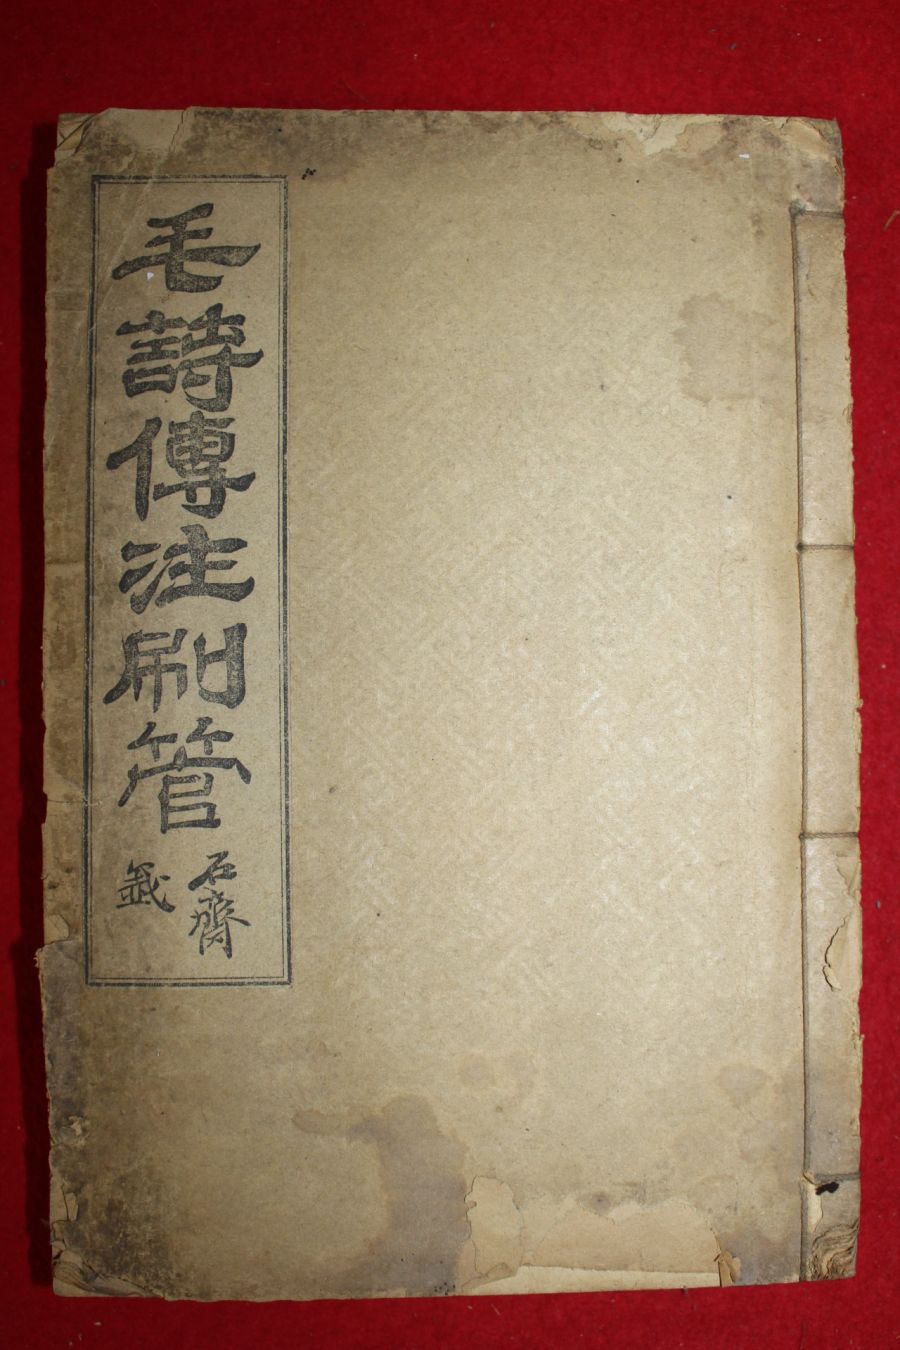 毛詩傳注刷管
石齋
籖